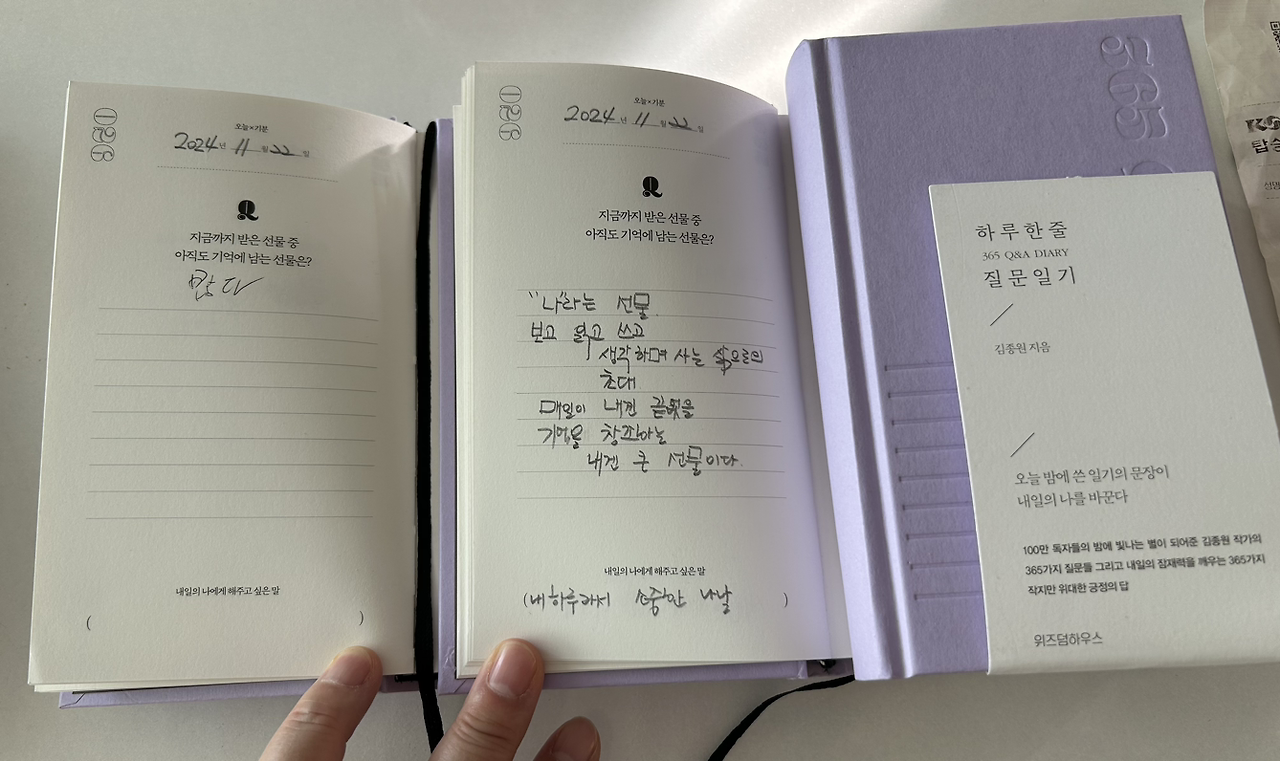 026
오늘×기분
2024년 11월 22일
Q
지금까지 받은 선물 중
아직도 기억에 남는 선물은?
많다
내일의 나에게 해주고 싶은 말
( )
026
오늘×기분
2024년 11월 22일
Q
지금까지 받은 선물 중
아직도 기억에 남는 선물은?
"나"라는 선물.
보고 읽고 쓰고
생각하며 사는 삶으로의
초대
매일이 내겐
기억을
내겐 큰 선물이다.
내일의 나에게 해주고 싶은 말
(네 하루라서 소중한 나날 )
365
하루 한 줄
365 Q&A DIARY
질문일기
김종원 지음
오늘 밤에 쓴 일기의 문장이
내일의 나를 바꾼다
100만 독자들의 밤에 빛나는 별이 되어준 김종원 작가의
365가지 질문들 그리고 내일의 잠재력을 깨우는 365가지
작지만 위대한 긍정의 답
위즈덤하우스